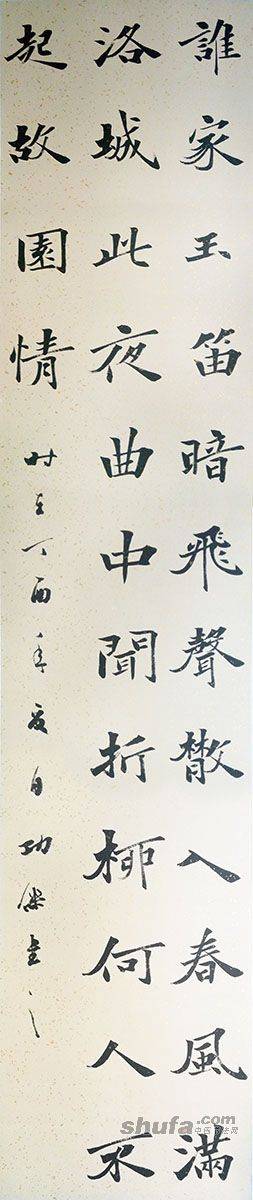 誰家玉笛暗飛聲散入春風滿
洛城此夜曲中聞折柳何人不
起故園情
时在丁酉年夏日功傑書之
shufa.com
中国书法网